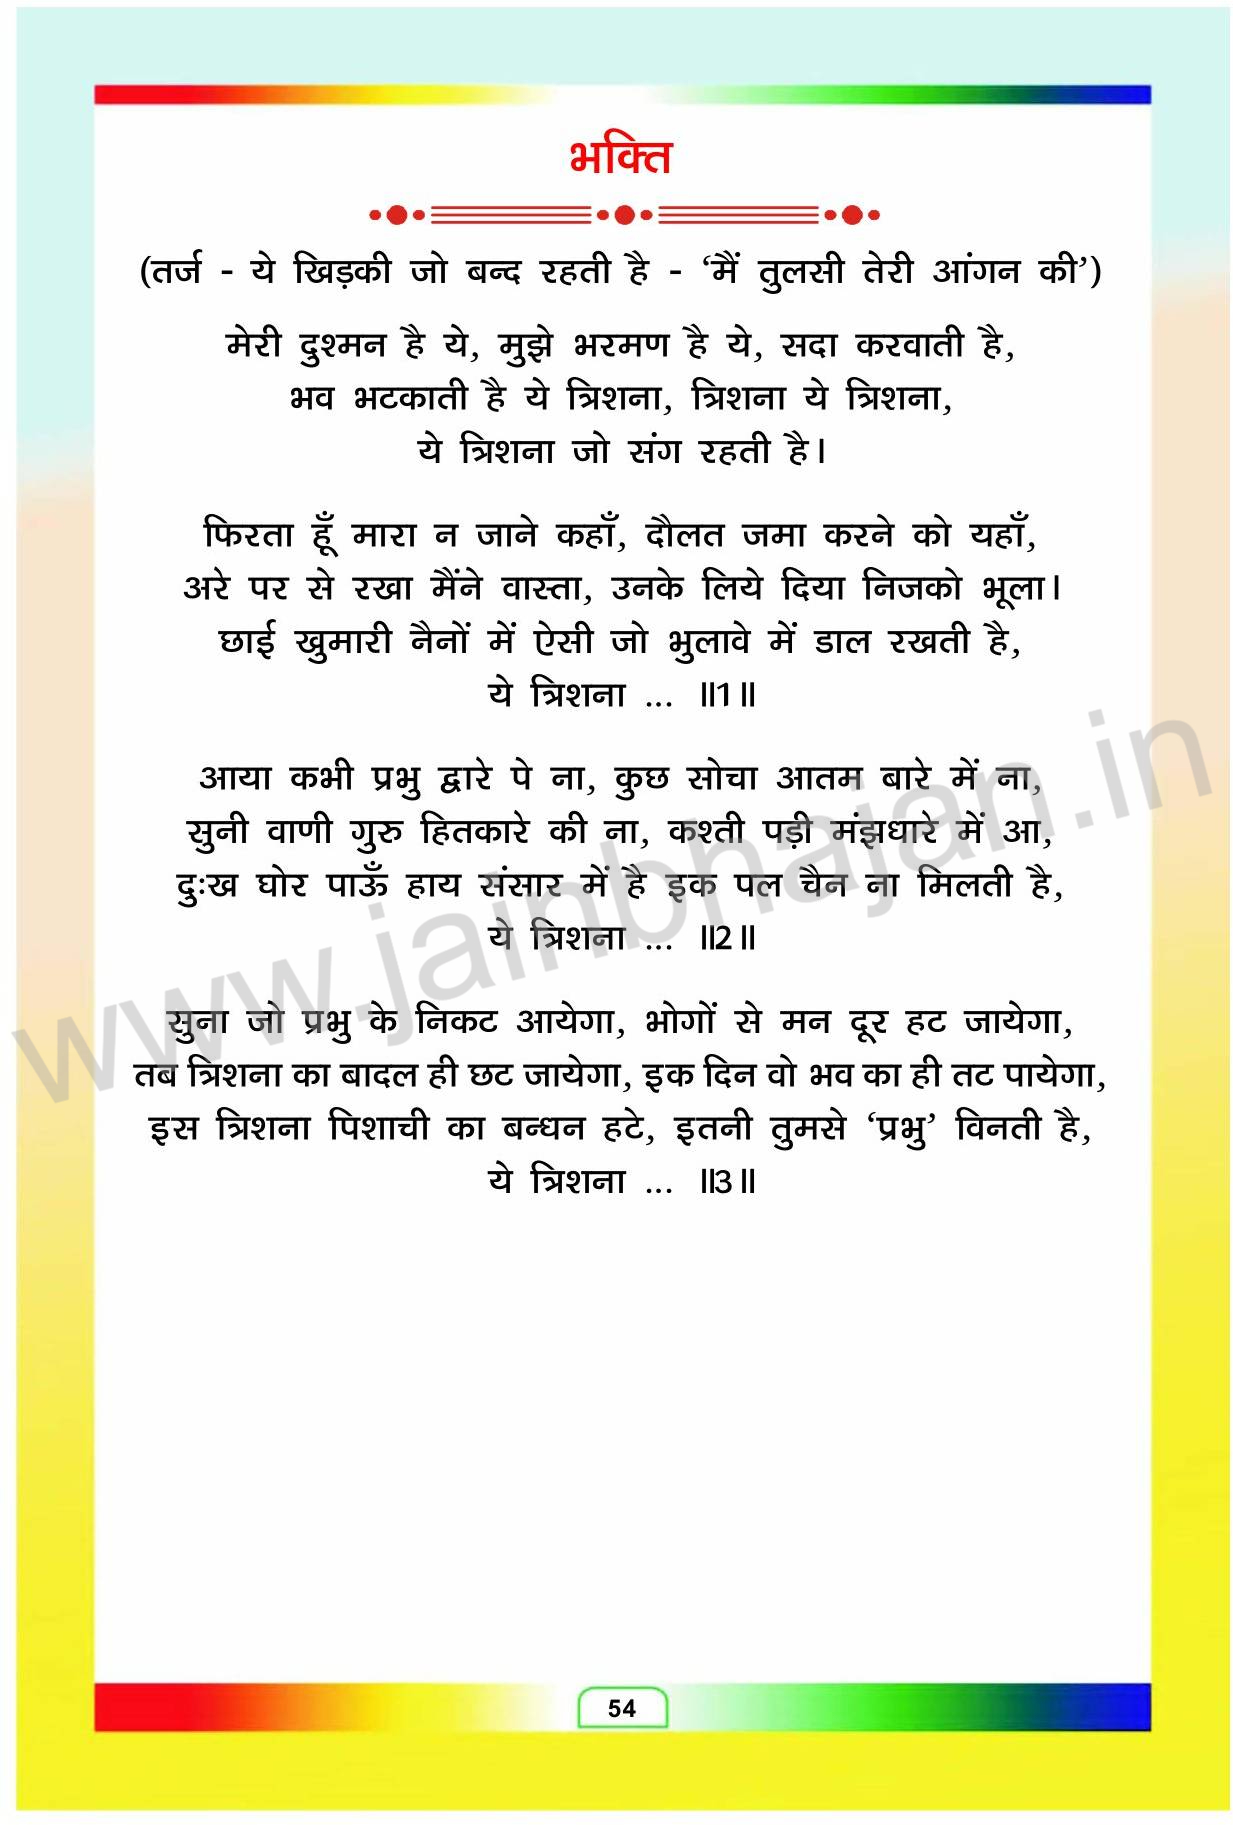 भक्ति
(तर्ज - ये खिड़की जो बन्द रहती है - ‘मैं तुलसी तेरी आंगन की’)
मेरी दुश्मन है ये, मुझे भरमण है ये, सदा करवाती है,
भव भटकाती है ये त्रिशना, त्रिशना ये त्रिशना,
ये त्रिशना जो संग रहती है।
फिरता हूँ मारा न जाने कहाँ, दौलत जमा करने को यहाँ,
अरे पर से रखा मैंने वास्ता, उनके लिये दिया निजको भूला।
छाई खुमारी नैनों में ऐसी जो भुलावे में डाल रखती है,
ये त्रिशना ... ॥1॥
आया कभी प्रभु द्वारे पे ना, कुछ सोचा आतम बारे में ना,
सुनी वाणी गुरु हितकारे की ना, कश्ती पड़ी मंझधारे में आ,
दुःख घोर पाऊँ हाय संसार में है इक पल चैन ना मिलती है,
ये त्रिशना ... ॥2॥
सुना जो प्रभु के निकट आयेगा, भोगों से मन दूर हट जायेगा,
तब त्रिशना का बादल ही छट जायेगा, इक दिन वो भव का ही तट पायेगा,
इस त्रिशना पिशाची का बन्धन हटे, इतनी तुमसे ‘प्रभु’ विनती है,
ये त्रिशना ... ॥3॥
www.jainbhajan.in
54